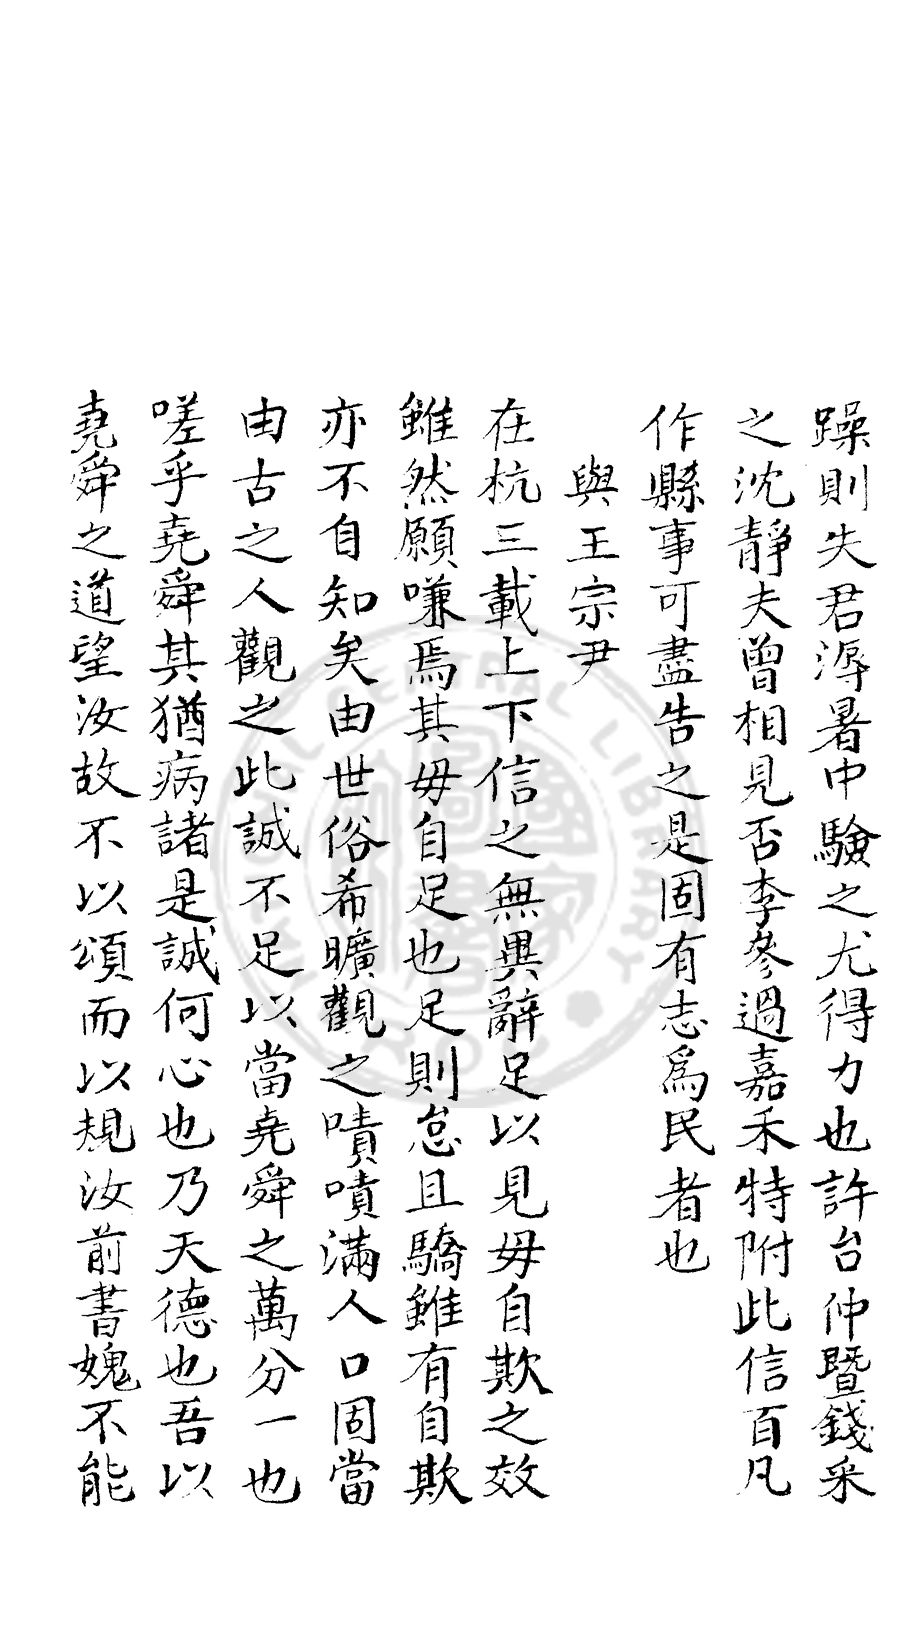 躁則失君溽暑中驗之尤得力也許台仲暨錢采
之沈靜夫曾相見否李參過嘉禾特附此信百凡
作縣事可盡告之是固有志爲民者也
與王宗尹
在杭三載上下信之無異辭足以見毋自欺之效
雖然願嗛焉其毋自足也足則怠且驕雖有自欺
亦不自知矣由世俗希曠觀之嘖嘖滿人口固當
由古之人觀之此誠不足以當堯舜之萬分一也
嗟乎堯舜其猶病諸是誠何心也乃天德也吾以
堯舜之道望汝故不以頌而以規汝前書媿不能
NATIONAL CENTRAL LIBRARY